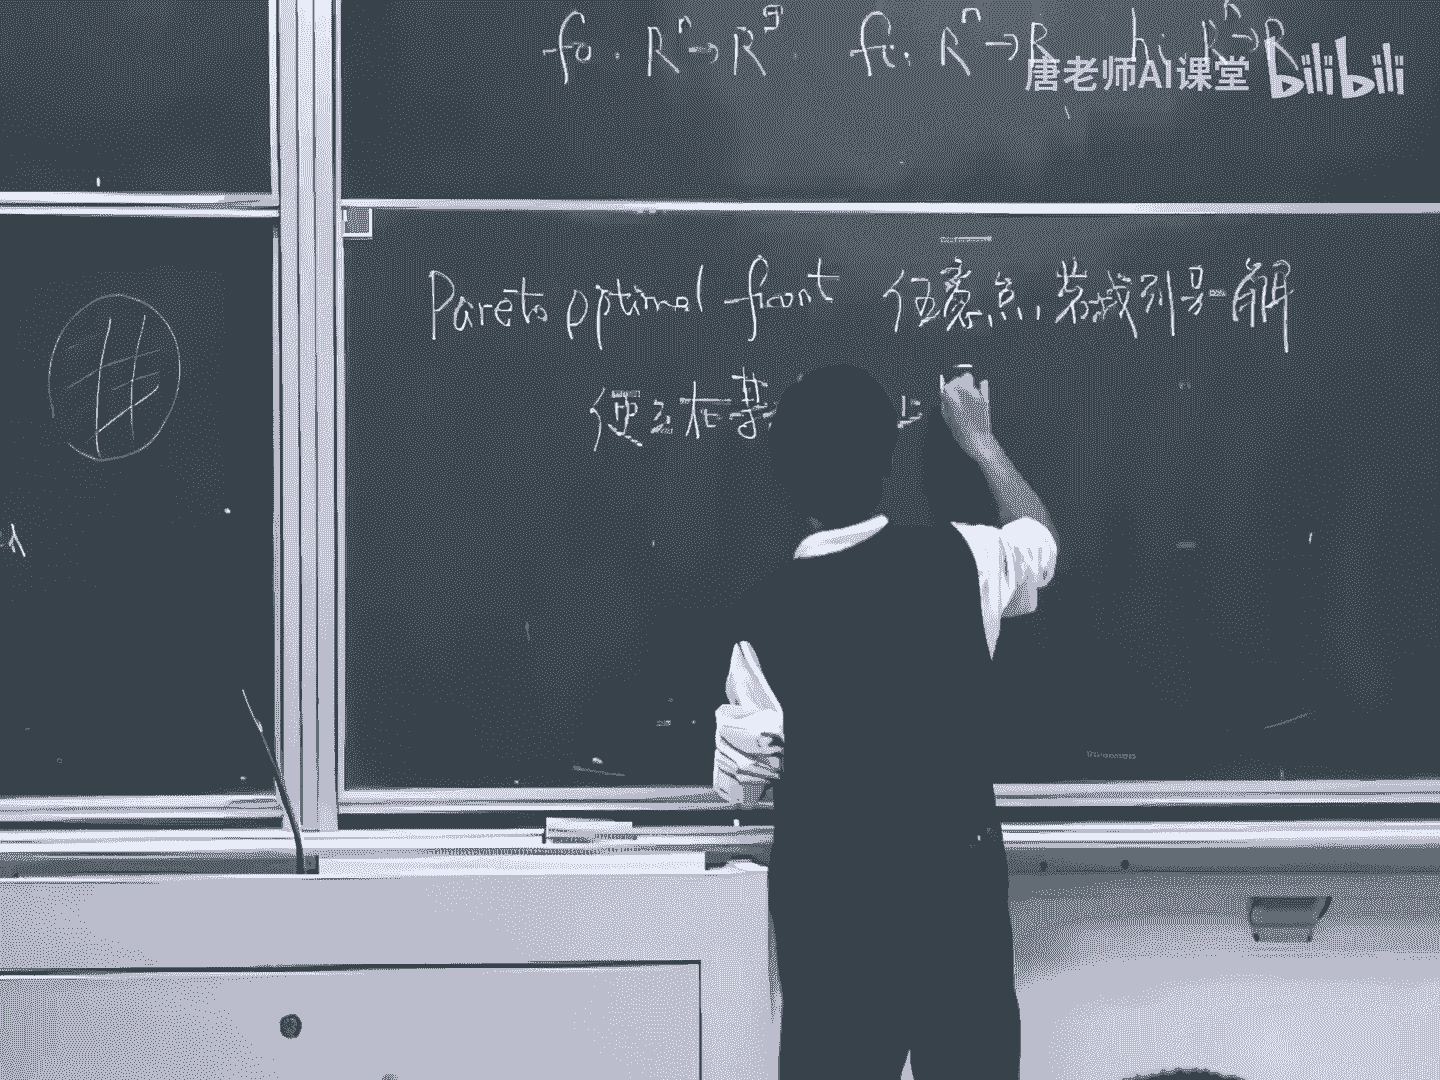 f₀: Rⁿ→R^q. fᵢ: Rⁿ→R hᵢ: Rⁿ→R
唐老师AI课堂 bilibili
Pareto optimal front 任意点,若找到另一解
使之在某 上